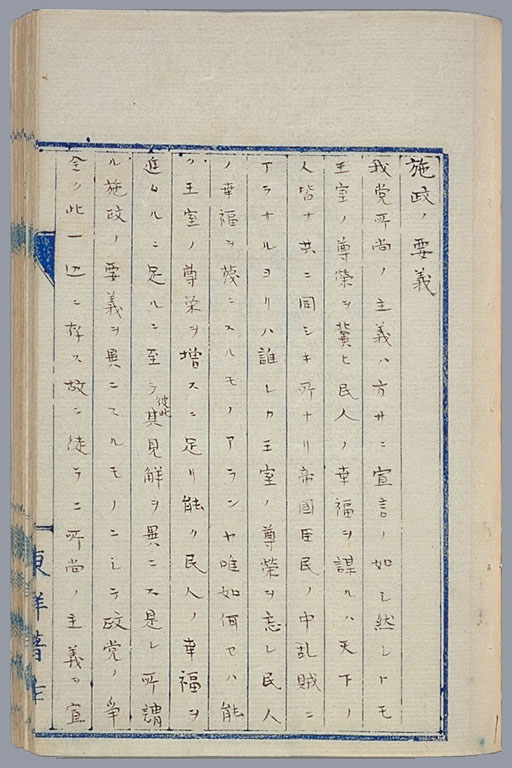 施政ノ要義
我党所尚ノ主義ハ方サニ宣言ノ如シ然レトモ
王室ノ尊栄ヲ冀ヒ民人ノ幸福ヲ謀ルハ天下ノ
人皆ナ共ニ同シキ所ナリ帝国臣民ノ中乱賊ニ
アラサルヨリハ誰レカ王室ノ尊榮ヲ忘レ民人
ノ幸福ヲ蔑ニスルモノアランヤ唯如何セハ能
ク王室ノ尊栄ヲ増スニ足リ能ク民人ノ幸福ヲ
進ムルニ足ルニ至テ彼此其見解ヲ異ニス是レ所謂
ル施政ノ要義ヲ異ニスルモノニシテ政党ノ争
全ク此一辺ニ存ス故ニ徒ラニ所尚ノ主義ヲ宣
東洋